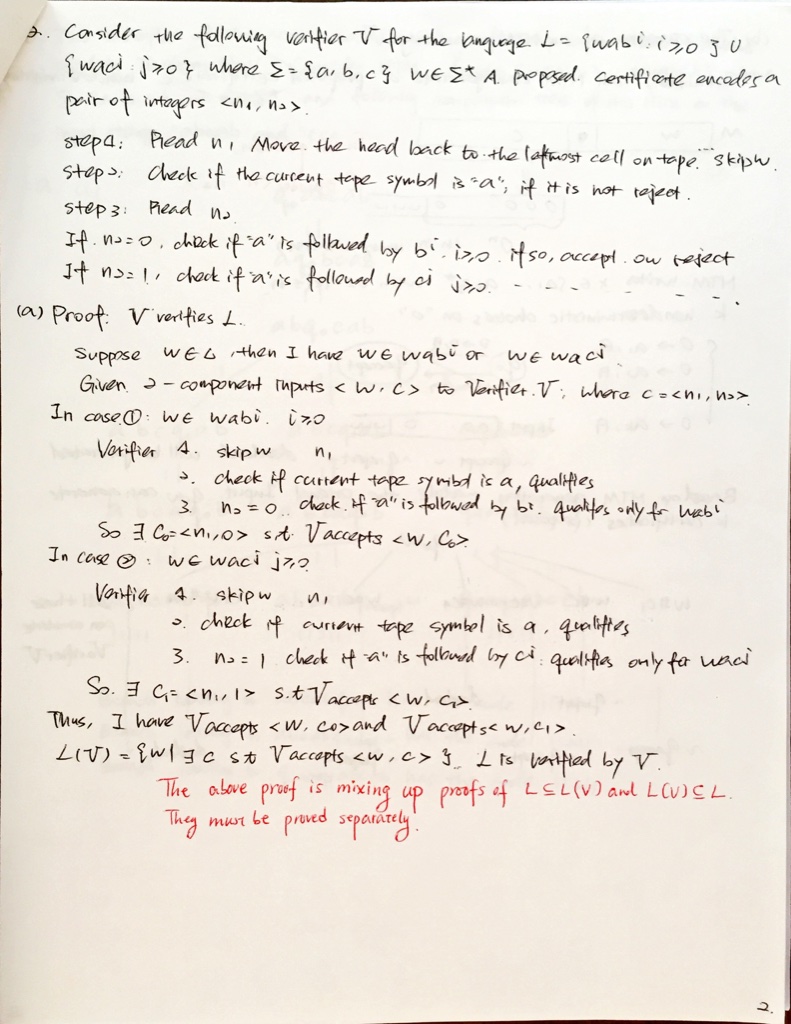 2. Consider the following verifier V for the language L = {wabⁱ: i≥0} ∪
{wacʲ: j≥0} where Σ = {a, b, c} w∈Σ* A proposed certificate encodes a
pair of integers <n₁, n₂>.
step 1: Read n₁ Move the head back to the leftmost cell on tape. skip w.
step 2: Check if the current tape symbol is "a", if it is not reject.
step 3: Read n₂
If n₂=0, check if "a" is followed by bⁱ. i≥0. if so, accept. ow reject
If n₂=1, check if "a" is followed by cʲ j≥0. - - - - - - -.
(a) Proof: V verifies L.
Suppose w∈L, then I have w∈wabⁱ or w∈wacʲ
Given 2-component inputs <w, c> to Verifier V, where c=<n₁, n₂>
In case ①: w∈ wabⁱ. i≥0
Verifier 1. skip w n₁
2. check if current tape symbol is a, qualifies
3. n₂=0. check if "a" is followed by bⁱ. qualifies only for wabⁱ
So ∃ C₀=<n₁, 0> s.t. V accepts <w, C₀>.
In case ②: w∈wacʲ j≥0
Verifier 1. skip w n₁
2. check if current tape symbol is a, qualifies
3. n₂=1 check if "a" is followed by cʲ: qualifies only for wacʲ
So. ∃ C₁=<n₁, 1> s.t V accepts <w, C₁>.
Thus, I have V accepts <w, c₀> and V accepts <w, c₁>.
L(V) = {w| ∃ c st V accepts <w, c>}. L is verified by V.
The above proof is mixing up proofs of L⊆L(V) and L(V)⊆L.
They must be proved separately.
2.